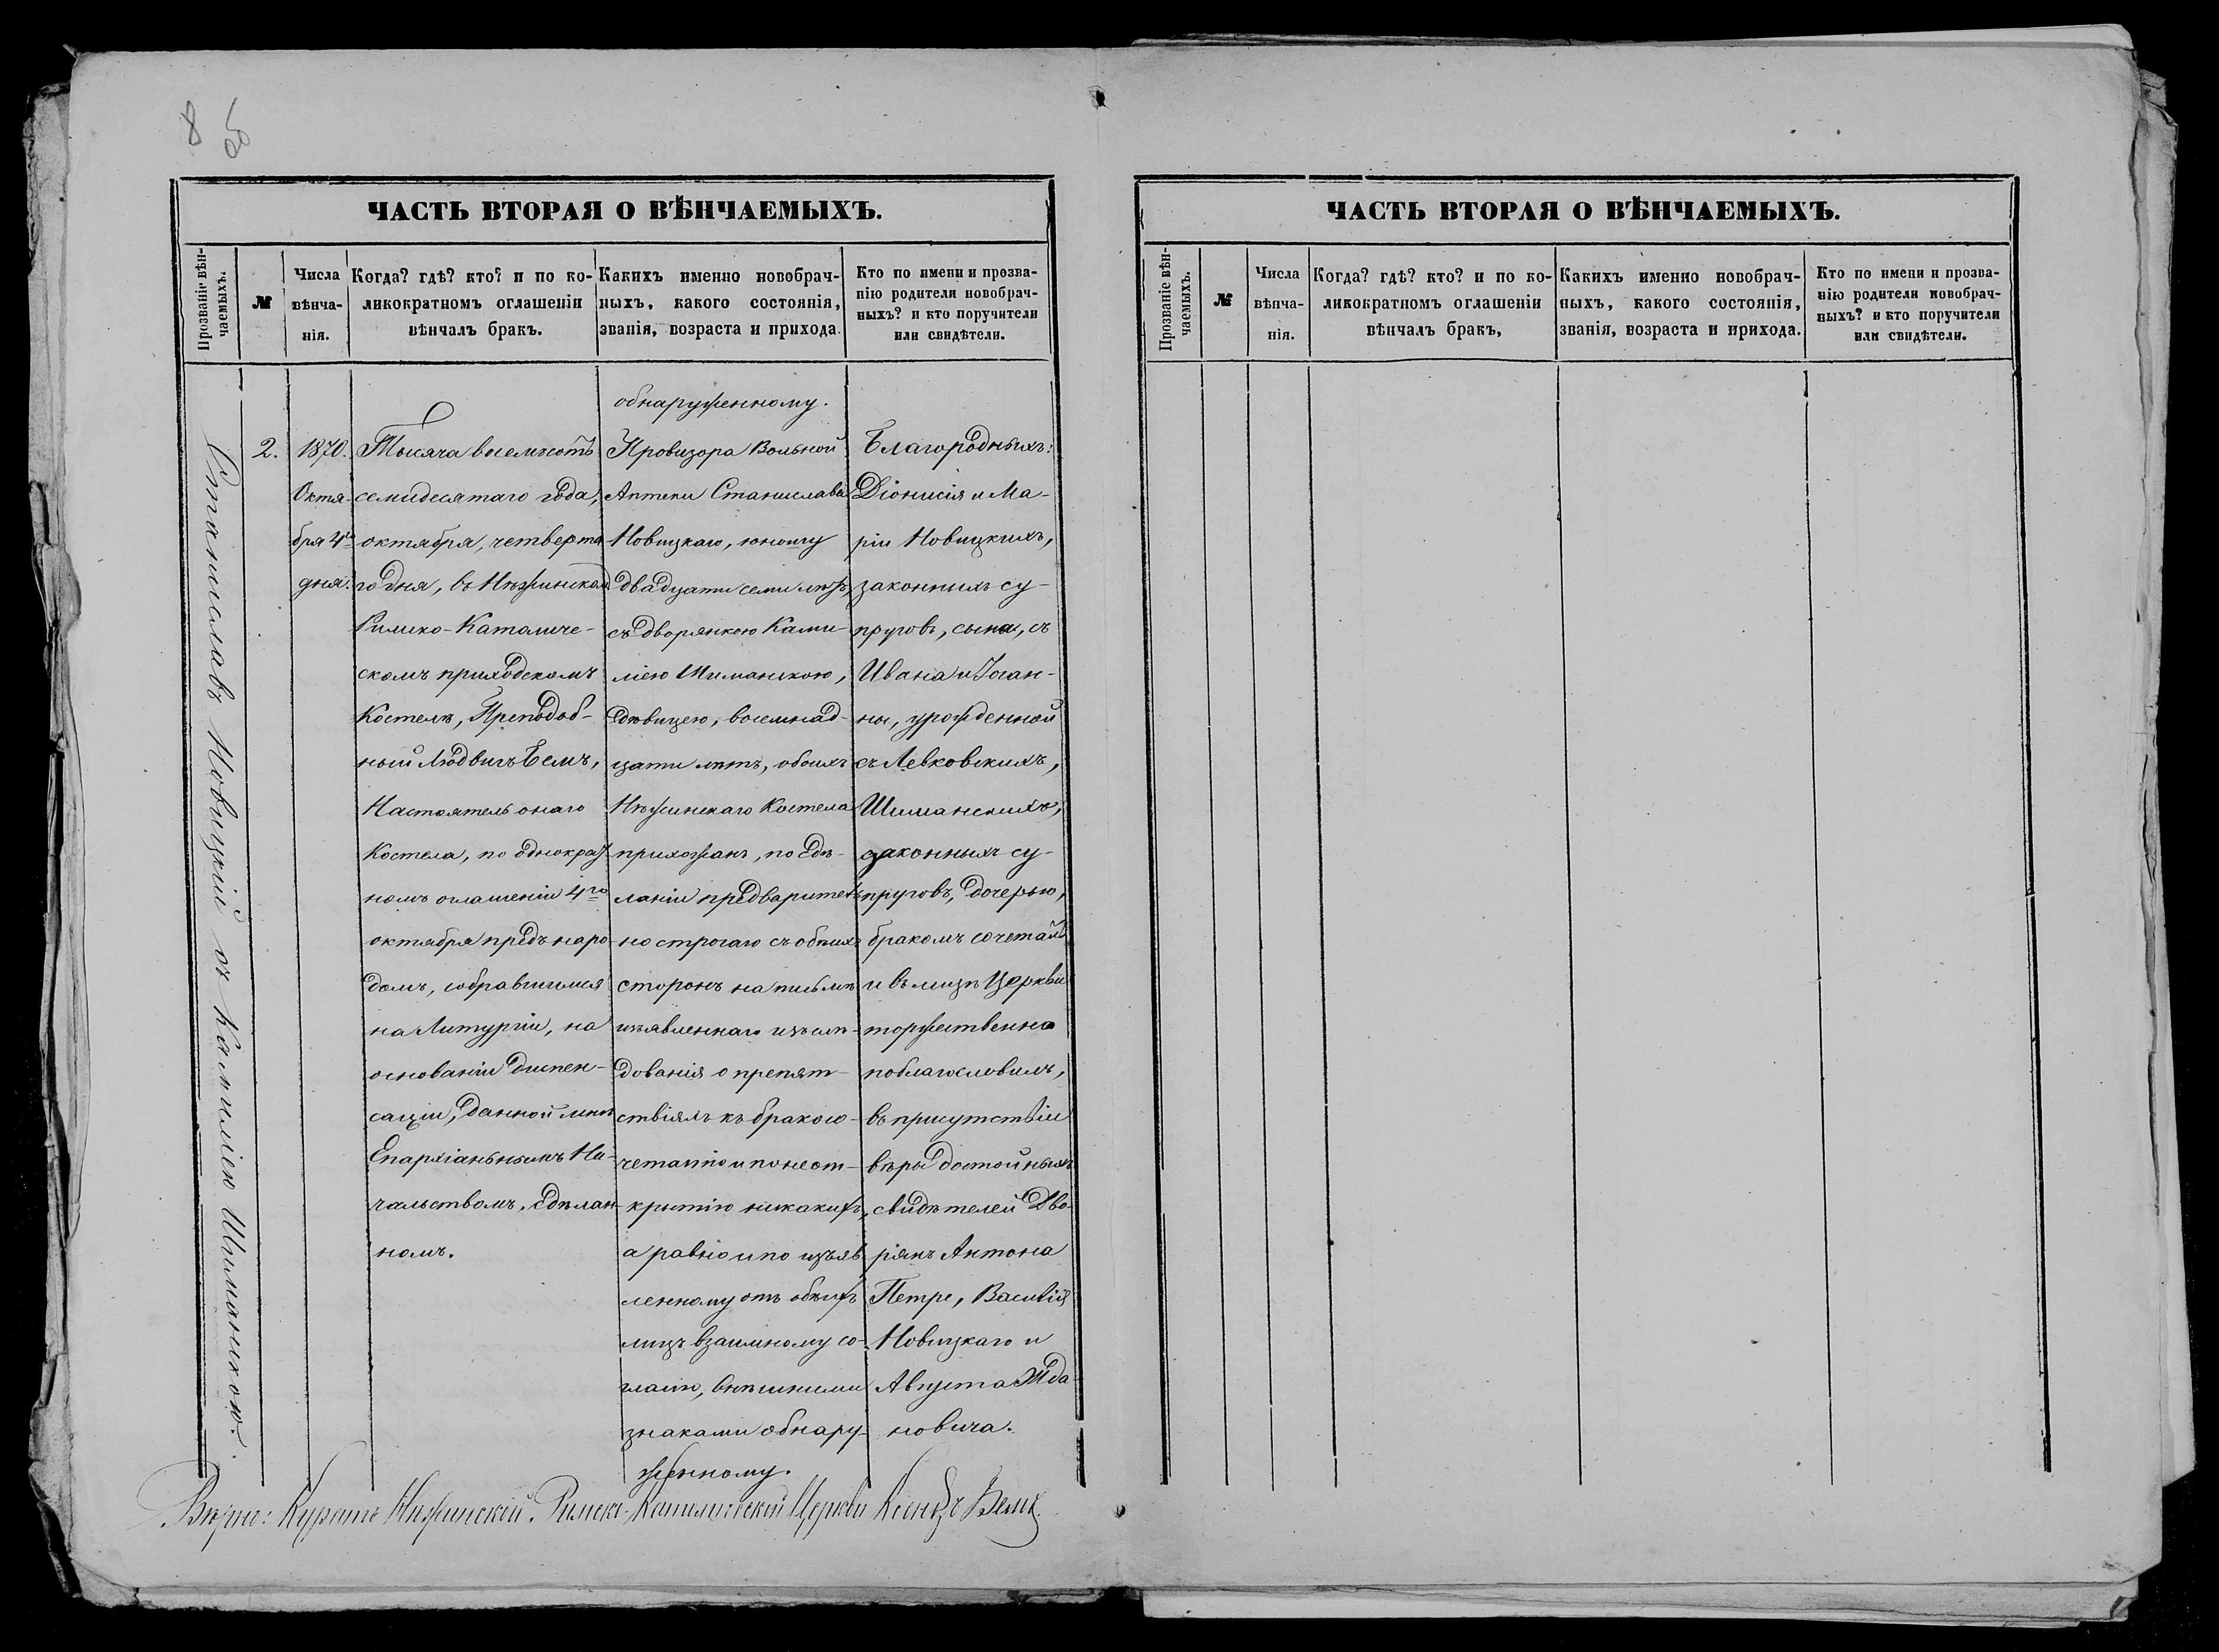 8
ЧАСТЬ ВТОРАЯ О ВѢНЧАЕМЫХЪ.
Прозваніе вѣн-
чаемыхъ.
№
Числа
вѣнча-
нія.
Когда? гдѣ? кто? и по ко-
ликократномъ оглашеніи
вѣнчалъ бракъ.
Какихъ именно новобрач-
ныхъ, какого состоянія,
званія, возраста и прихода.
Кто по имени и прозва-
нію родители новобрач-
ныхъ? и кто поручители
или свидѣтели.
Станиславъ Новицкій съ Камиліею Шиманскою.
2.
1870.
Октя-
бря 4го
дня.
Тысяча восемьсотъ
семидесятаго года,
октября, четверта
го дня, въ Нѣжинском
Римско-Католиче-
скомъ приходскомъ
Костелѣ, Преподоб-
ный Людвигъ Белъ,
Настоятель онаго
Костела, по однократ
номъ оглашеніи 4го
октября предъ наро
домъ, собравшимся
на Литургіи, на
основаніи диспен-
саціи, данной мнѣ
Епархіальнымъ На-
чальствомъ, сдѣлан
номъ.
обнаруженному.
Провизора Вольной
Аптеки Станислава
Новицкаго, юношу
двадцати семи лѣтъ,
съ дворянкою Ками
ліею Шиманскою,
дѣвицею, восемнад-
цати лѣтъ, обоихъ
Нѣжинскаго Костела
прихожанъ, по сдѣ-
ланіи предваритель
но строгаго съ обѣихъ
сторонъ на письмѣ
изъявленнаго изслѣ-
дованія о препят-
ствіяхъ къ бракосо-
четанію и по неот-
крытію никакихъ,
а равно и по изъяв
ленному отъ обѣихъ
лицъ взаимному со-
гласію, внѣшними
знаками обнару-
женному.
Благородныхъ:
Діонисія и Ма-
ріи Новицкихъ,
законныхъ су-
пруговъ, сына, съ
Ивана и Іоан-
ны, урожденной
съ Левковскихъ,
Шиманскихъ,
законныхъ су-
пруговъ, дочерью,
бракомъ сочеталъ
и въ лицѣ Церкви
торжественно
поблагословилъ,
въ присутствіи
вѣры достойныхъ
свидѣтелей Дво-
рянъ Антона
Петре, Василія
Новицкаго и
Августа Жда
новича.
Вѣрно: Куратъ Нѣжинской Римско-Католической Церкви Ксендзъ Белъ
ЧАСТЬ ВТОРАЯ О ВѢНЧАЕМЫХЪ.
Прозваніе вѣн-
чаемыхъ.
№
Числа
вѣнча-
нія.
Когда? гдѣ? кто? и по ко-
ликократномъ оглашеніи
вѣнчалъ бракъ,
Какихъ именно новобрач-
ныхъ, какого состоянія,
званія, возраста и прихода.
Кто по имени и прозва-
нію родители новобрач-
ныхъ? и кто поручители
или свидѣтели.